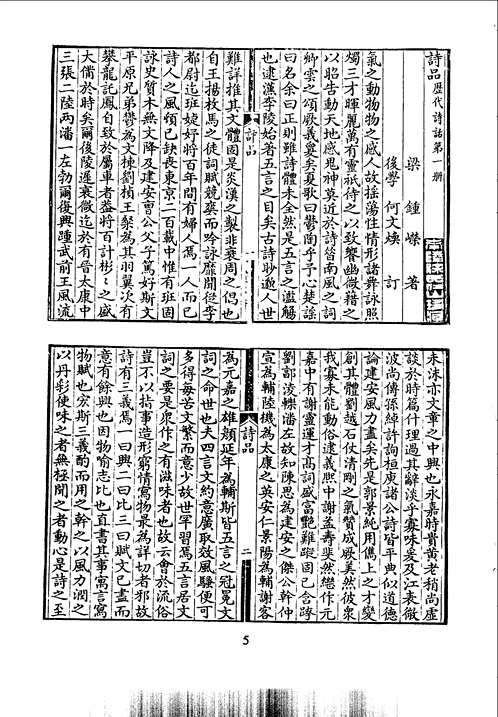 詩品 歷代詩話第一冊
梁 鍾嶸 著
後學 何文煥 訂
氣之動物物之感人故搖蕩性情形諸舞詠照
燭三才暉麗萬有靈祇待之以致饗幽微藉之
以昭告動天地感鬼神莫近於詩昔南風之詞
卿雲之頌厥義夐矣夏歌曰鬱陶乎予心楚謠
曰名余曰正則雖詩體未全然是五言之濫觴
也逮漢李陵始著五言之目矣古詩眇邈人世
詩品
一
難詳推其文體固是炎漢之製非衰周之倡也
自王揚枚馬之徒詞賦競爽而吟詠靡聞從李
都尉迄班婕妤將百年間有婦人焉一人而已
詩人之風頓已缺喪東京二百載中惟有班固
詠史質木無文降及建安曹公父子篤好斯文
平原兄弟鬱為文棟劉楨王粲為其羽翼次有
攀龍託鳳自致於屬車者蓋將百計彬彬之盛
大備於時矣爾後陵遲衰微迄於有晉太康中
三張二陸兩潘一左勃爾復興踵武前王風流
未沫亦文章之中興也永嘉時貴黃老稍尚虛
談於時篇什理過其辭淡乎寡味爰及江表微
波尚傳孫綽許詢桓庾諸公詩皆平典似道德
論建安風力盡矣先是郭景純用儁上之才變
創其體劉越石仗清剛之氣贊成厥美然彼衆
我寡未能動俗逮義熙中謝益壽斐然繼作元
嘉中有謝靈運才高詞盛富艷難蹤固已含跨
劉郭淩轢潘左故知陳思為建安之傑公幹仲
宣為輔陸機為太康之英安仁景陽為輔謝客
詩品
二
為元嘉之雄顏延年為輔斯皆五言之冠冕文
詞之命世也夫四言文約意廣取效風騷便可
多得每苦文繁而意少故世罕習焉五言居文
詞之要是衆作之有滋味者也故云會於流俗
豈不以指事造形窮情寫物最為詳切者邪故
詩有三義焉一曰興二曰比三曰賦文已盡而
意有餘興也因物喻志比也直書其事寓言寫
物賦也宏斯三義酌而用之幹之以風力潤之
以丹彩使味之者無極聞之者動心是詩之至
5